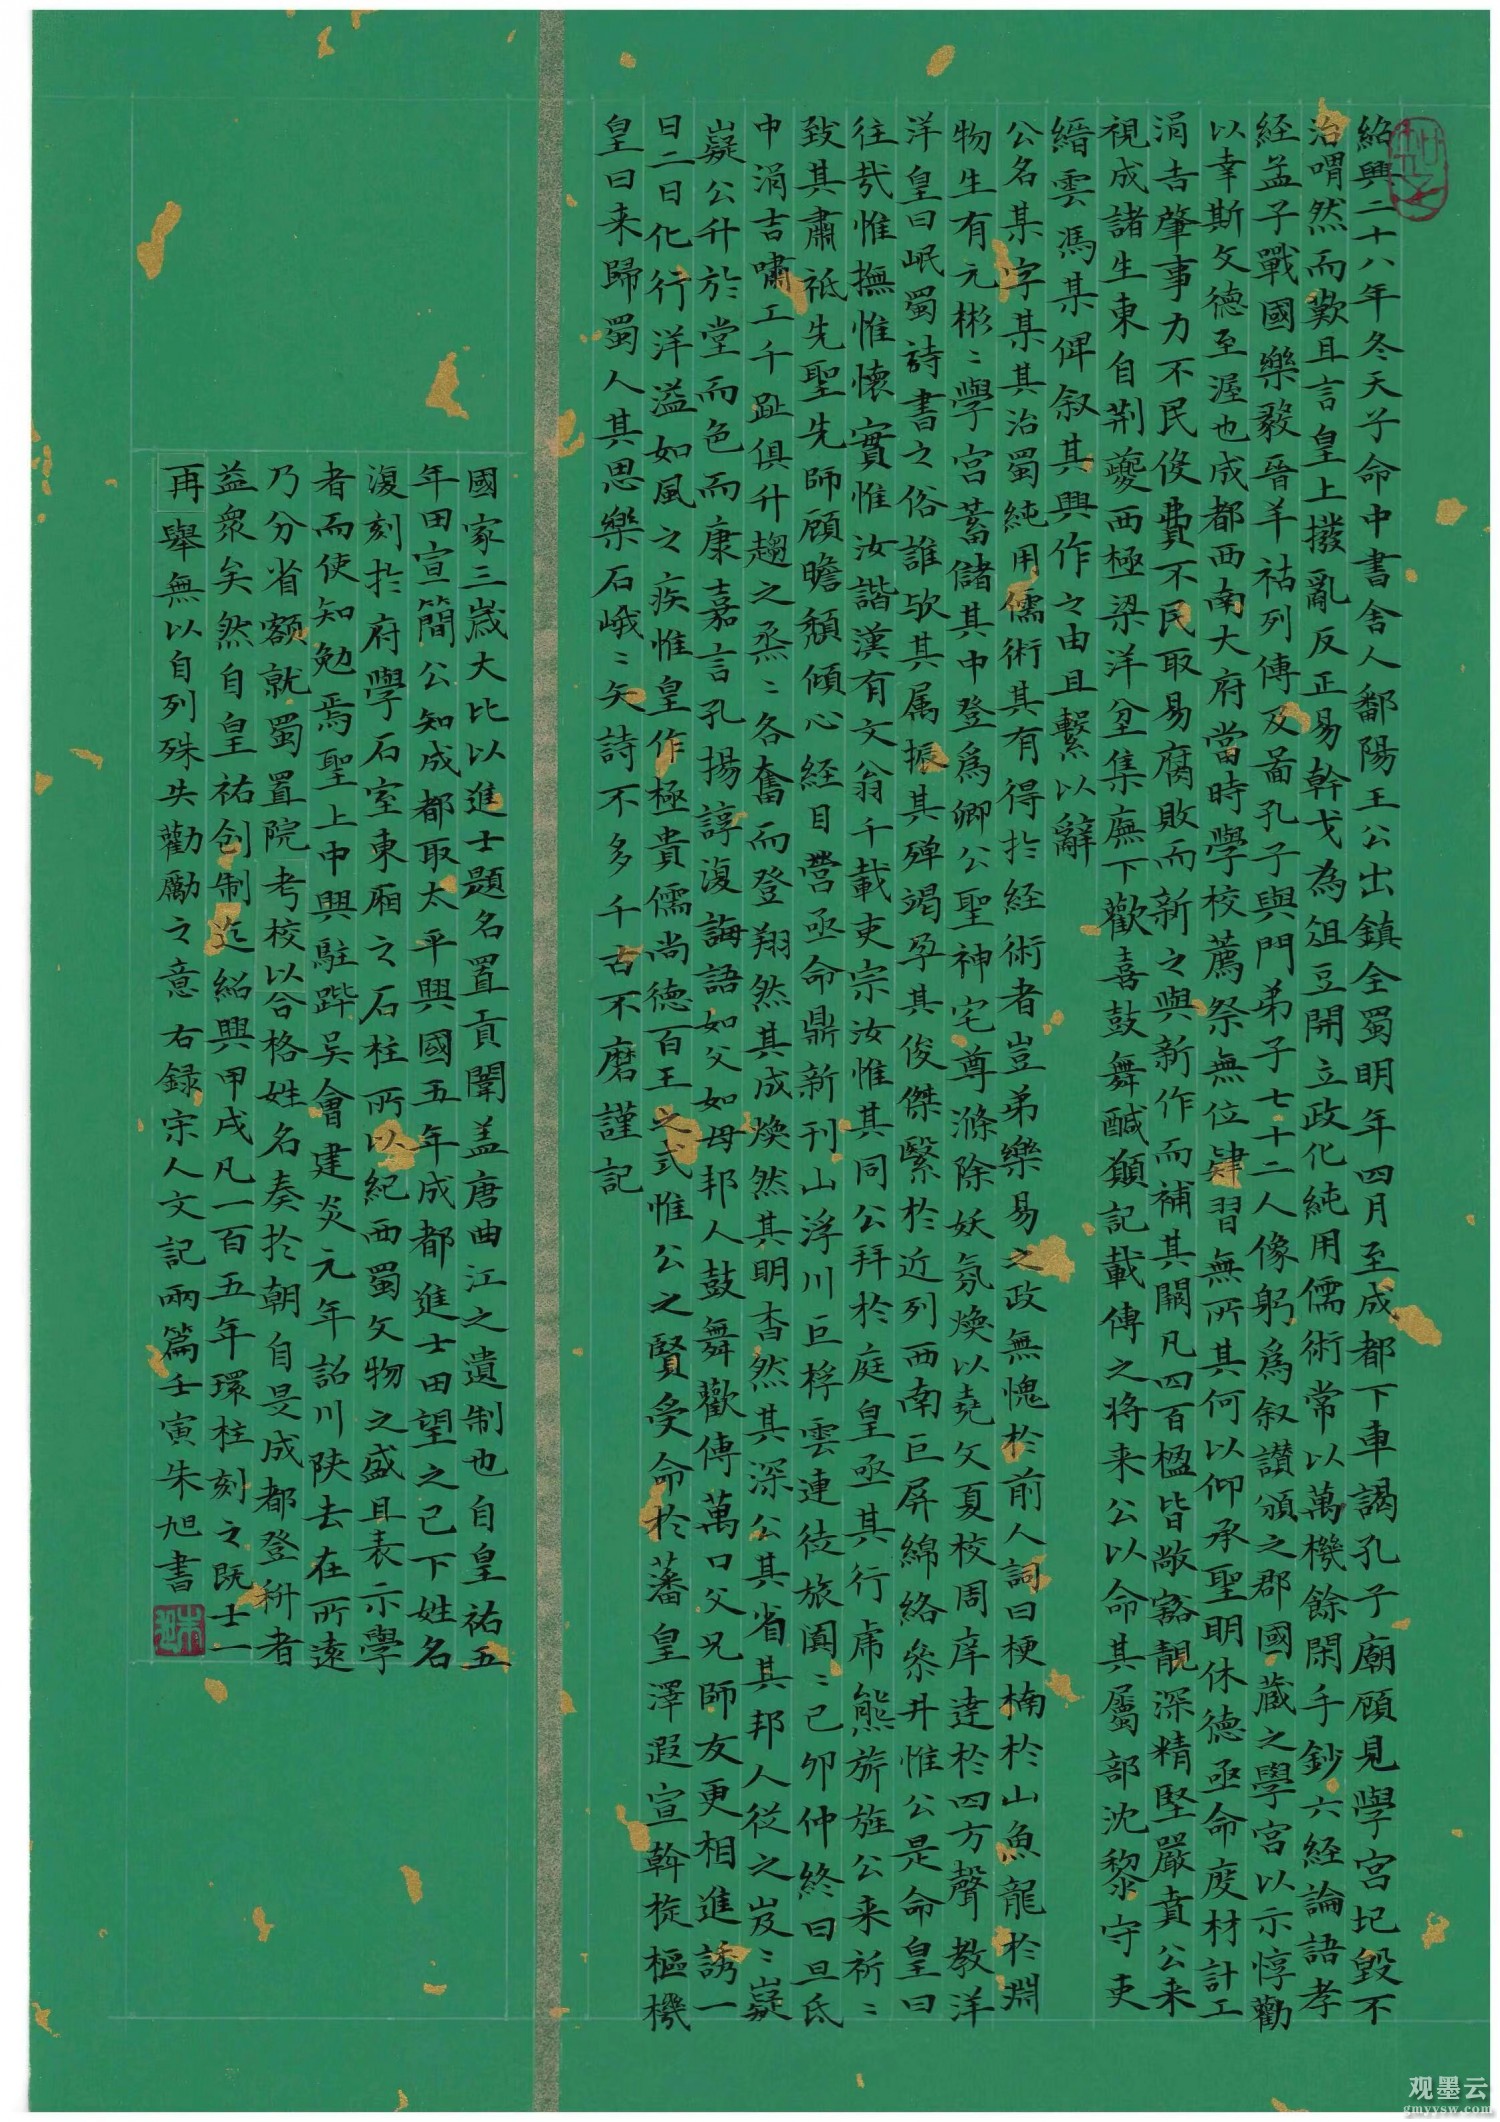 紹興二十八年冬天子命中書舍人鄱陽王公出鎮全蜀明年四月至成都下車謁孔子廟顧見學宮圮毀不
治喟然而歎且言皇上撥亂反正易幹戈為俎豆開立政化純用儒術常以萬機餘閑手鈔六經論語孝
經孟子戰國樂毅晉羊祜列傳及畵孔子與門弟子七十二人像躬爲叙讃頒之郡國藏之學宮以示惇勸
以幸斯文德至渥也成都西南大府當時學校薦祭無位肄習無所其何以仰承聖明休德亟命度材計工
涓吉肇事力不民役費不民取易腐敗而新之與新作而補其闕凡四百楹皆敞豁靚深精堅嚴賁公来
視成諸生東自荆夔西極梁洋坌集廡下歡喜鼓舞醎顚記載傳之将来公以命其屬部沈黎守吏
縉雲馮某俾叙其興作之由且繫以辭
公名某字某其治蜀純用儒術其有得於経術者豈弟樂易之政無愧於前人詞曰梗楠於山魚龍於淵
物生有元彬〻學宮蓄儲其中登爲卿公聖神宅尊滌除妖氛煥以堯文夏校周庠達於四方聲教洋
洋皇曰岷蜀詩書之俗誰欤其属振其殫竭孕其俊傑繄於近列西南巨屏綿絡叅井惟公是命皇曰
往㢤惟撫惟懷實惟汝諧漢有文翁千載吏宗汝惟其同公拜於庭皇亟其行席熊旂旌公来祈〻
致其肅祗先聖先師顧瞻頽傾心経目營亟命鼎新刊山浮川巨桴雲連徒旅闐〻己卯仲終曰旦氐
中涓吉嘯工千趾俱升趨之烝〻各奮而登翔然其成煥然其明杳然其深公其省其邦人従之岌〻嶷
嶷公升於堂而色而康嘉言孔揚諄復誨語如父如母邦人鼓舞歡傳萬口父兄師友更相進誘一
日二日化行洋溢如風之疾惟皇作極貴儒尚德百王之式惟公之賢受命於蕃皇澤遐宣斡旋樞機
皇曰来歸蜀人其思樂石峨〻矢詩不多千古不磨謹記
國家三歲大比以進士題名置貢闈盖唐曲江之遺制也自皇祐五
年田宣簡公知成都取太平興國五年成都進士田望之已下姓名
復刻於府學石室東厢之石柱所以紀西蜀文物之盛且表示學
者而使知勉焉聖上中興駐蹕吴會建炎元年詔川陝去在所遠
乃分省額就蜀置院考校以合格姓名奏於朝自是成都登科者
益衆矣然自皇祐創制迄紹興甲戌凡一百五年環柱刻之既士一
再舉無以自列殊失勸勵之意右録宋人文記兩篇壬寅朱旭書
观墨云
gmyysw.com